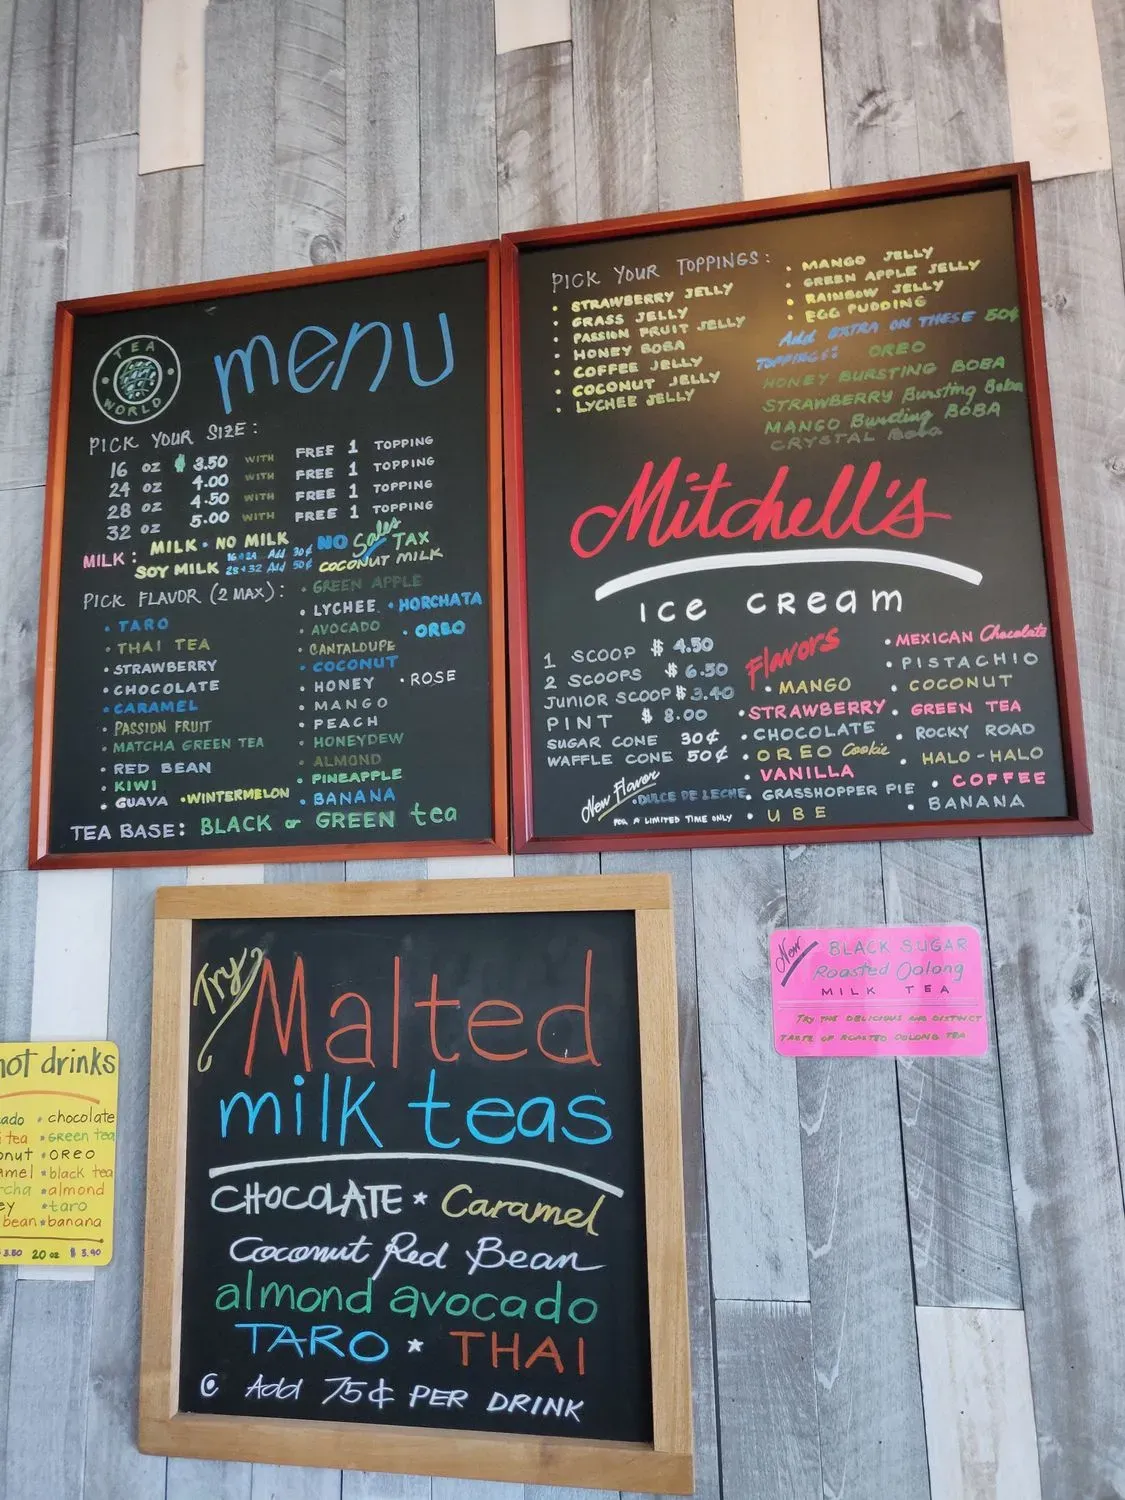 TEA
WORLD
menu
PICK YOUR SIZE:
16 oz $ 3.50 WITH FREE 1 TOPPING
24 oz 4.00 WITH FREE 1 TOPPING
28 oz 4.50 WITH FREE 1 TOPPING
32 oz 5.00 WITH FREE 1 TOPPING
MILK: MILK • NO MILK NO Sales TAX
SOY MILK 16+24 Add 30¢ COCONUT MILK
28+32 Add 50¢
PICK FLAVOR (2 MAX):
• TARO
• THAI TEA
• STRAWBERRY
• CHOCOLATE
• CARAMEL
• PASSION FRUIT
• MATCHA GREEN TEA
• RED BEAN
• KIWI
• GUAVA • WINTERMELON
• GREEN APPLE
• LYCHEE • HORCHATA
• AVOCADO • OREO
• CANTALOUPE
• COCONUT
• HONEY • ROSE
• MANGO
• PEACH
• HONEYDEW
• ALMOND
• PINEAPPLE
• BANANA
TEA BASE: BLACK or GREEN tea
PICK YOUR TOPPINGS:
• STRAWBERRY JELLY
• GRASS JELLY
• PASSION FRUIT JELLY
• HONEY BOBA
• COFFEE JELLY
• COCONUT JELLY
• LYCHEE JELLY
• MANGO JELLY
• GREEN APPLE JELLY
• RAINBOW JELLY
• EGG PUDDING
Add EXTRA ON THESE 50¢
TOPPINGS: OREO
HONEY BURSTING BOBA
STRAWBERRY Bursting Boba
MANGO Bursting BOBA
CRYSTAL Boba
Mitchell's
ice cream
1 SCOOP $ 4.50
2 SCOOPS $ 6.50
JUNIOR SCOOP $ 3.40
PINT $ 8.00
SUGAR CONE 30¢
WAFFLE CONE 50¢
New Flavor
• DULCE DE LECHE
FOR A LIMITED TIME ONLY
Flavors
• MANGO
• STRAWBERRY
• CHOCOLATE
• OREO Cookie
• VANILLA
• GRASSHOPPER PIE
• UBE
• MEXICAN Chocolate
• PISTACHIO
• COCONUT
• GREEN TEA
• ROCKY ROAD
• HALO-HALO
• COFFEE
• BANANA
Try Malted
milk teas
CHOCOLATE * Caramel
Coconut Red Bean
almond avocado
TARO * THAI
Add 75¢ PER DRINK
New BLACK SUGAR
Roasted Oolong
MILK TEA
TRY THE DELICIOUS AND DISTINCT
TASTE OF ROASTED OOLONG TEA
hot drinks
ado • chocolate
i tea • GREEN tea
onut • OREO
amel • black tea
rcha • almond
ey • taro
bean • banana
3.80 20 oz $ 3.90